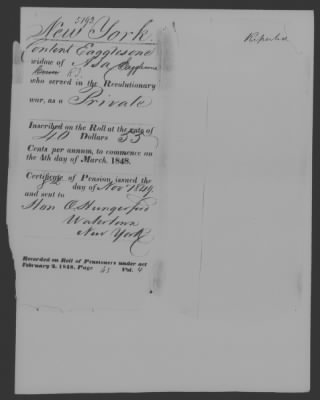 5192
New York.
Content Eagglesone
widow of Asa Eagglesone
who served in the Revolutionary
war, as a Private
Inscribed on the Roll at the rate of
40 Dollars 33
Cents per annum, to commence on
the 4th day of March, 1848.
Certificate of Pension issued the
day of Nov 1849
and sent to
Hon O. Hungerford
Watertown
New York
Recorded on Roll of Pensioners under act
February 2, 1848, Page 65 Vol. 4